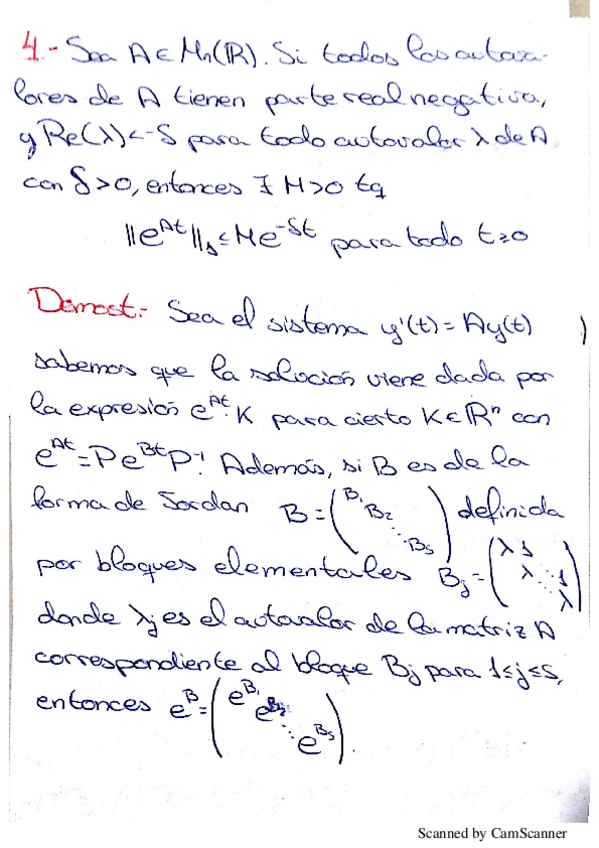 4.- Sea A ∈ Mn(ℝ). Si todos los autova-
lores de A tienen parte real negativa,
y Re(λ) < -δ para todo autovalor λ de A
con δ > 0, entonces ∃ M > 0 tq
||e^{At}||_1 ≤ Me^{-δt} para todo t ≥ 0
Demost:- Sea el sistema y'(t) = Ay(t)
sabemos que la solución viene dada por
la expresión e^{At}·K para cierto K ∈ ℝ^n con
e^{At} = Pe^{Bt}P^{-1}. Además, si B es de la
forma de Jordan B = (B_1 B_2 ⋱ B_s) definida
por bloques elementales B_j = (λ 1 λ ⋱ 1 λ)
donde λ_j es el autovalor de la matriz A
correspondiente al bloque B_j para 1 ≤ j ≤ s,
entonces e^B = (e^{B_1} e^{B_2} ⋱ e^{B_s}).
Scanned by CamScanner